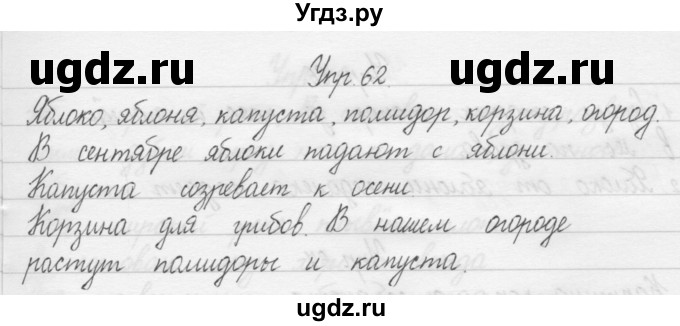 Угдз.ру
ugdz.ru Упр. 62. ugdz.ru
Яблоко, яблоня, капуста, помидор, корзина, огород.
В сентябре яблоки падают с яблони.
Капуста созревает к осени
Корзина для грибов. В нашем огороде
растут помидоры и капуста.
ugdz.ru